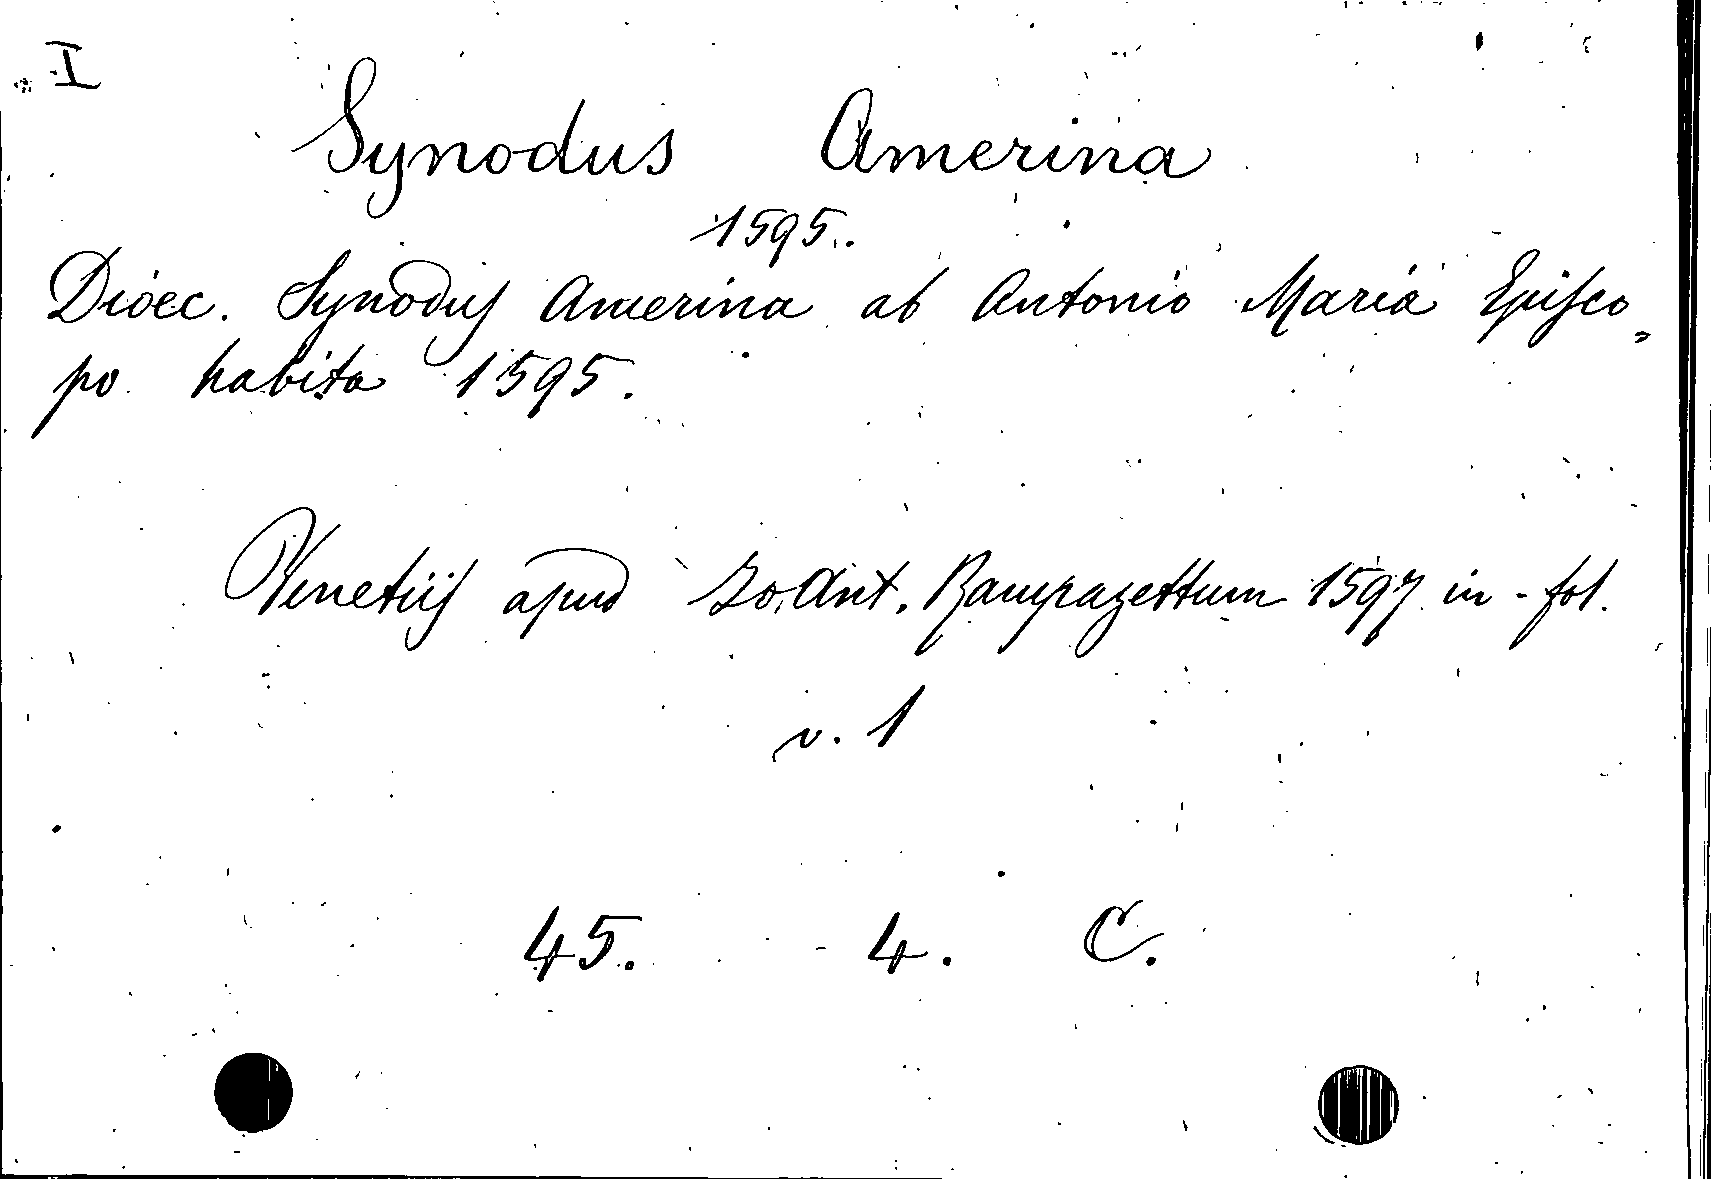 I
Synodus Amerina
1595.
Dioec. Synodus Amerina ab Antonio Maria Episco„
po habita 1595.
Venetiis apud Io. Ant. Rampazettum 1597 in-fol.
v. 1
45. 4. C.